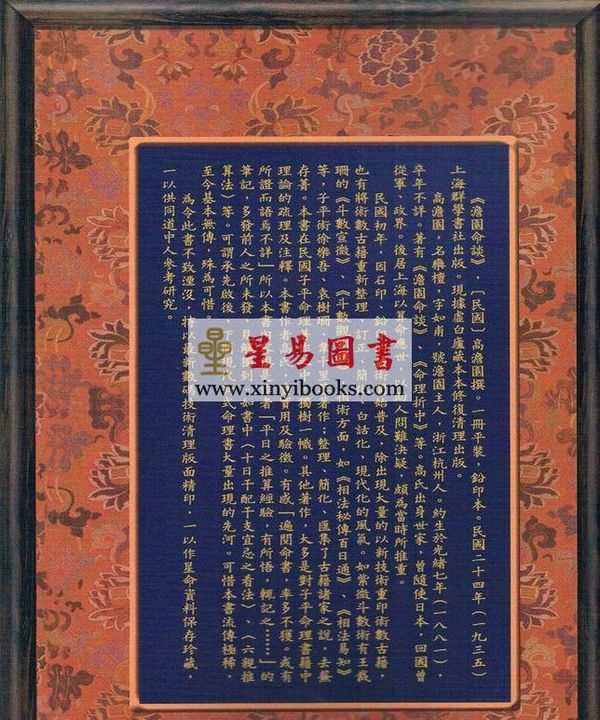 《澹園命談》，〔民國〕高澹園撰。一冊平裝，鉛印本。民國二十四年（一九三五）
上海群學書社出版。現據虛白廬藏本本修復清理出版。
高澹園，名樂檀，字如甫，號澹園主人，浙江杭州人。約生於光緒七年（一八八一），
卒年不詳。著有《澹園命談》、《命理折中》等。高氏出身世家，曾隨使日本，回國曾
從軍、政界。後居上海以算命應世，以人問難決疑，頗為當時所推重。
民國初年，因石印、鉛術紹普及，除出現大量的以新技術重印術數古籍，
也有將術數古籍重新整理、訂正、簡白話化、現代化的風氣。如紫微斗數術有王裁
珊的《斗數宣微》、《斗數觀相術方面，如《相法秘傳百日通》、《相法易知》
等，子平術徐樂吾、袁樹珊、韋千里著作；整理、簡化、匯集了古籍諸家之說，去蕪
存菁。本書在民國子平命理中獨樹一幟。其他著作，大多是對子平命理書籍中
理論的疏理及注釋。本書作者高實用及驗徵。有感「遍閱命書，率多不獲。或有
所證而語焉不詳」所以本書者「平日之推算經驗，有所悟，輒記之……」的
筆記，多發前人之所未發如書中〈十日千配千支宜忌之看法〉、〈六親推
算法〉等。可謂承先啟後，現代式命理書大量出現的先河。可惜本書流傳極稀，
至今基本無傳，殊為可惜
為令此書不致湮沒，特以最新數碼技術清理版面精印，一以作星命資料保存珍藏，
一以供同道中人參考研究。
星易圖書
www.xinyibooks.com